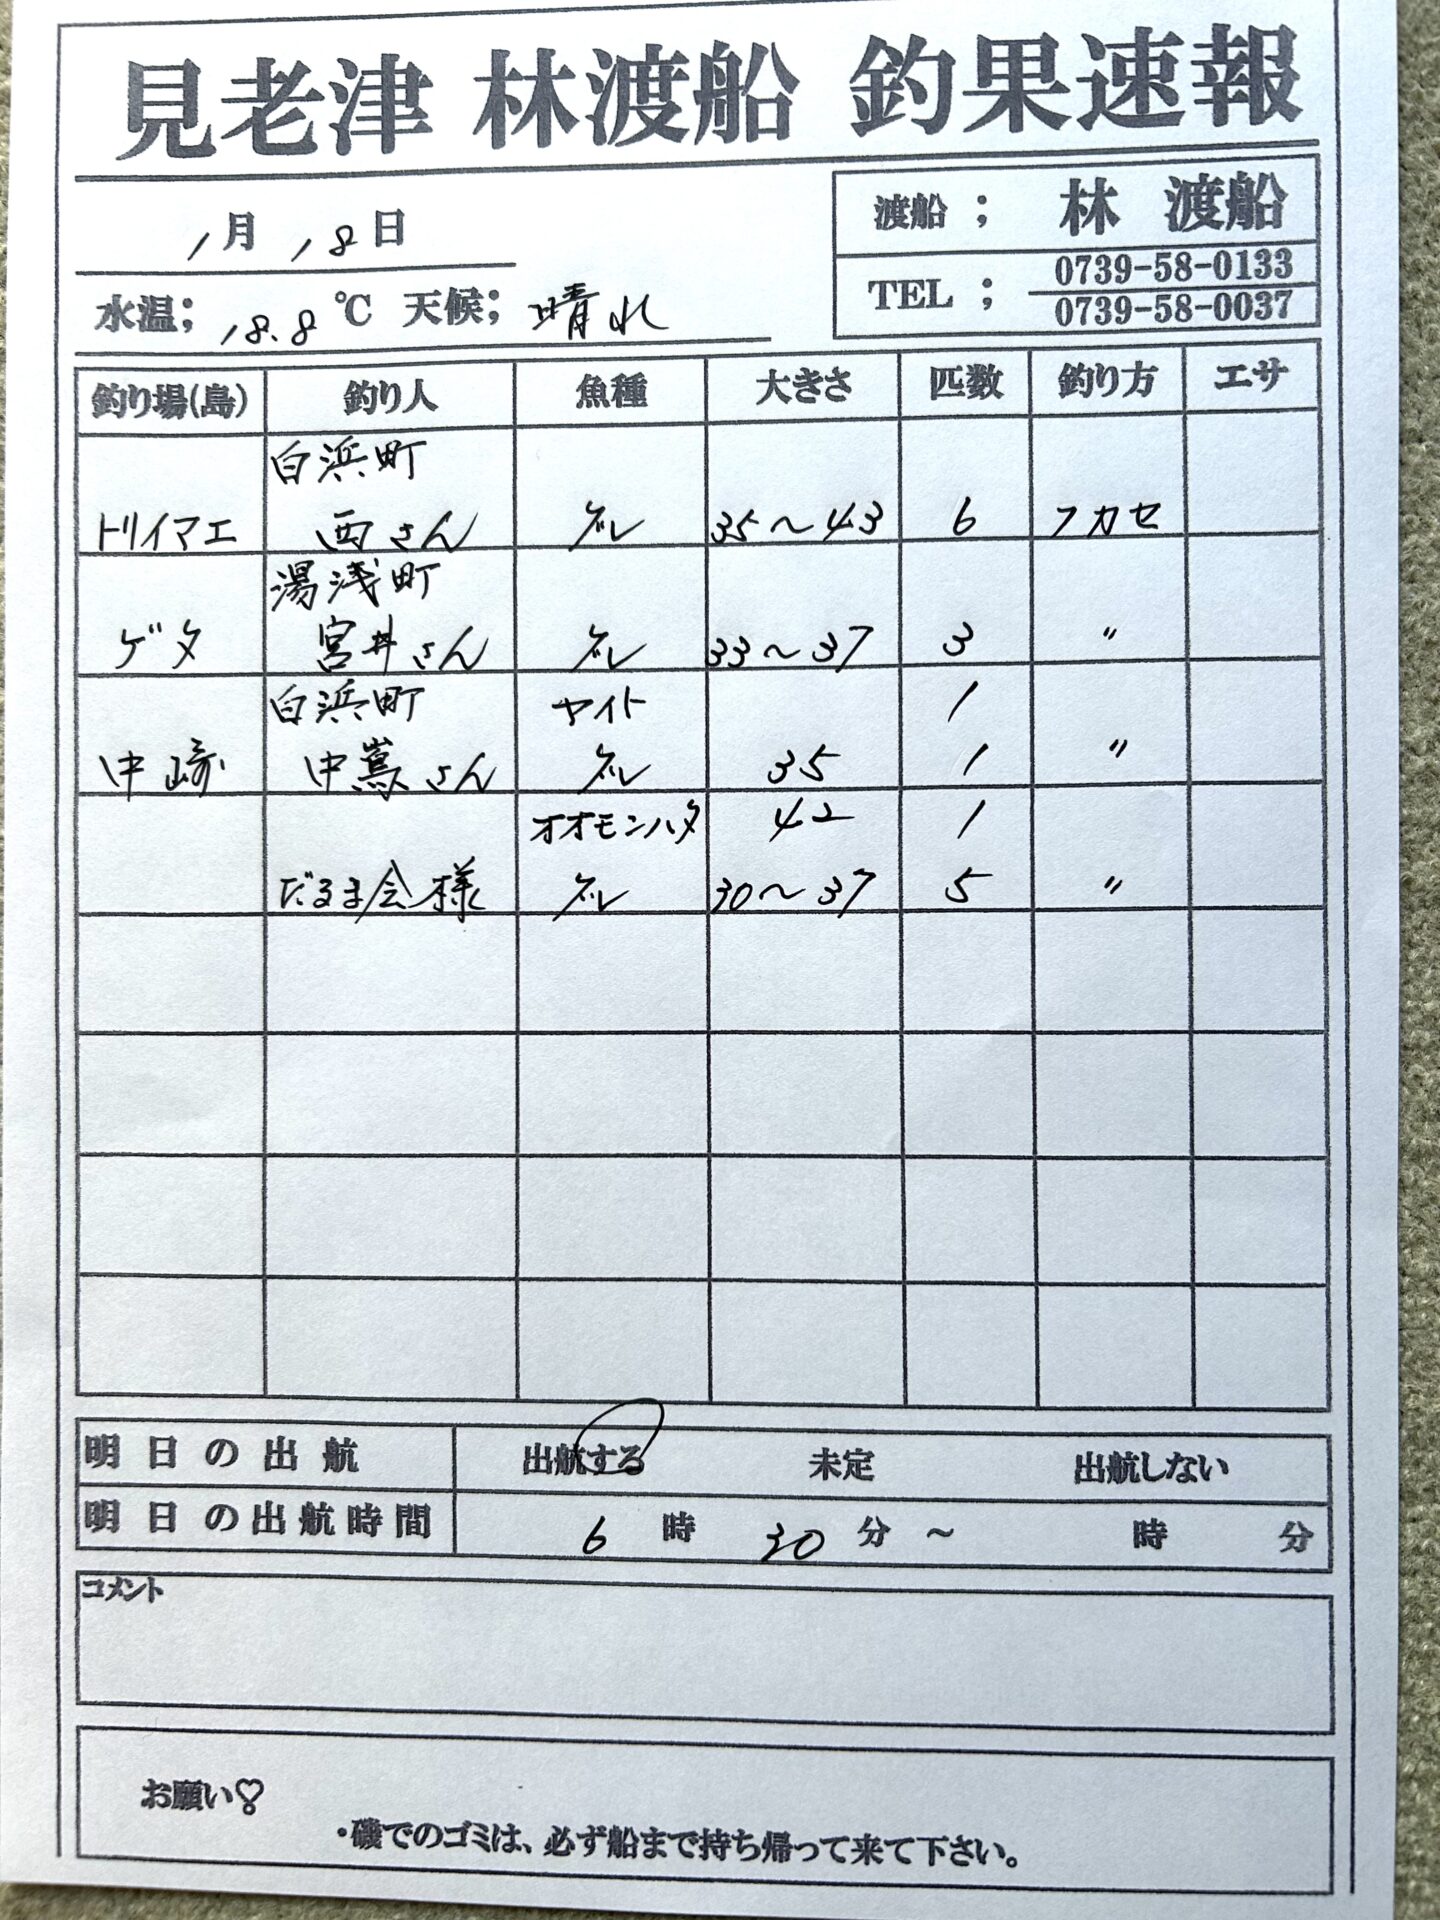 見老津 林渡船 釣果速報
1月 18日
渡船 ; 林 渡船
TEL ; 0739-58-0133
0739-58-0037
水温; 18.8 ℃ 天候; 晴れ
釣り場(島) 釣り人 魚種 大きさ 匹数 釣り方 エサ
白浜町
トリイマエ 西さん グレ 35〜43 6 フカセ
湯浅町
ゲタ 宮井さん グレ 33〜37 3 〃
白浜町 ヤイト 1
中崎 中嶌さん グレ 35 1 〃
オオモンハタ 42 1
だるま会様 グレ 30〜37 5 〃
明日の出航 出航する 未定 出航しない
明日の出航時間 6 時 30 分 ~ 時 分
コメント
お願い♡
・磯でのゴミは、必ず船まで持ち帰って来て下さい。